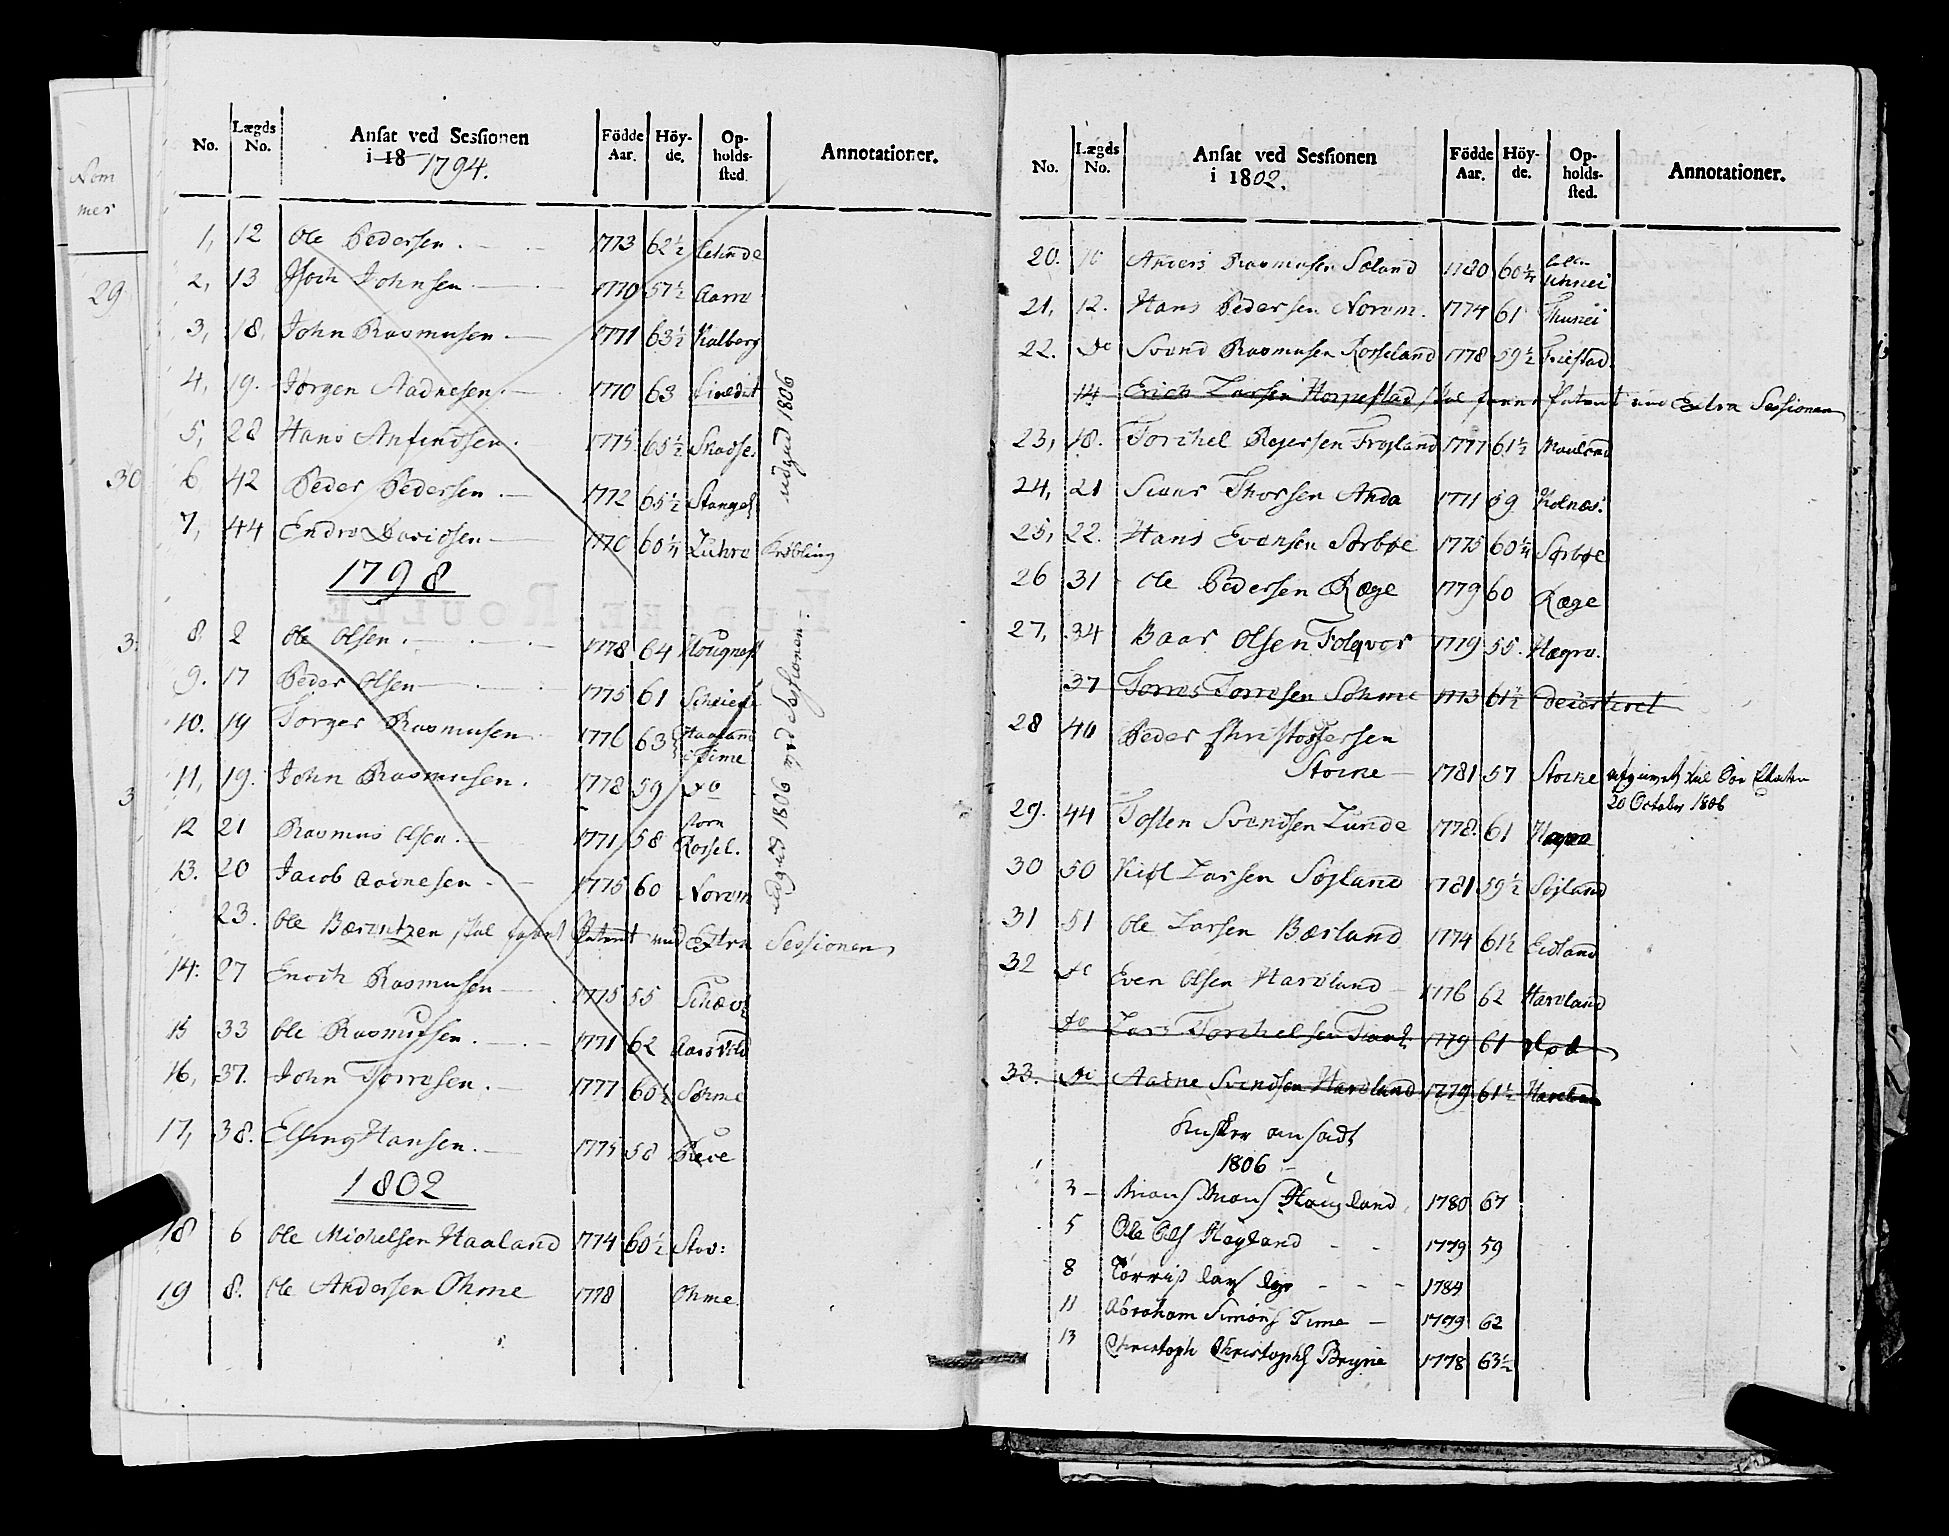 Nom
mer
29
30
3
3
No. Lægds No. Ansat ved Sessionen i 18 1794. Födde Aar. Höy-de. Op-holds-sted. Annotationer.
1, 12 Ole Pedersen. 1773 62½
2, 13 Johnsen 1770 57½
3, 18. John Rasmusen 1771 63½ Kalberg
4, 19. Jörgen Aadnesen. 1770 63
5, 28 Hans Anfindsen. 1775 65½
6 42 Peder Pedersen. 1772 65½ Stangel
7, 44 Endre Davidsen 1770 60¼
udgaed 1806
1798
8 2 Ole Olsen. 1778 64
9. 17 Peder Olsen 1775 61
10. 19 Torger Rasmusen 1776 63 Haaland i Time
11, 19. John Rasmusen. 1778 59 do
12 21 Rasmus Olsen. 1771 58 Rossel.
13. 20 Jacob Aadnesen 1775 60 Norem
23. Ole Barentzen skal faaet Patent ved Extra Sessionen
14. 27 Enoch Rasmusen 1775 55
15 33 Ole Rasmusen. 1771 62
16, 37. John Torresen. 1777 60½ Söhme
17, 38. Elling Hansen. 1775 58 Reve
udgaed 1806 ved Sessionen.
1802
18 6 Ole Michelsen Haaland 1774 60½ Stov:
19 8. Ole Andersen Ohme 1778 Ohme
No. Lægds No. Ansat ved Sessionen i 1802. Födde Aar. Höy-de. Op-holds-sted. Annotationer.
20. Anders Rasmusen Soland 1780 60¼
21, 12. Hans Pedersen Norem. 1774 61 Thunei
22. do Svend Rasmusen Rosseland 1778 59½ Friestad
14 Erich Larsen Horpestad skal Patent ved Extra Sessionen
23, 18. Torchel Rejersen Frojland 1777 61½
24, 21 Siver Thorsen Anda 1771 59 Kolnes.
25, 22. Hans Evensen Sörböe 1775 60¼ Sörböe
26 31 Ole Pedersen Ræge 1779 60 Ræge
27, 34 Baar Olsen Folqvor 1779 55. Hægre.
37 Torres Torresen Sohme 1773 61½ desertiret
28 40 Peder Christoffersen
Storne 1781 57 Storne
20 October 1806
29. 44 Tosten Svendsen Lunde 1778. 61
30 50 Kield Larsen Söjland 1781 59½ Söjland
31 51 Ole Larsen Bærland 1774 61½ Eidland
32 do Even Olsen Harvland 1776 62 Harvland
do Lars Torchelsen 1779 61 död
33. do Aadne Svendsen Harvland 1779 61½
ansadt
1806
3 Mons Mons Haugland 1780 67
5 Ole Ols Hagland 1779 59
8 1784
11 Abraham Simons Time 1779 62
13 Christoph Christophs Bryne 1778 63½